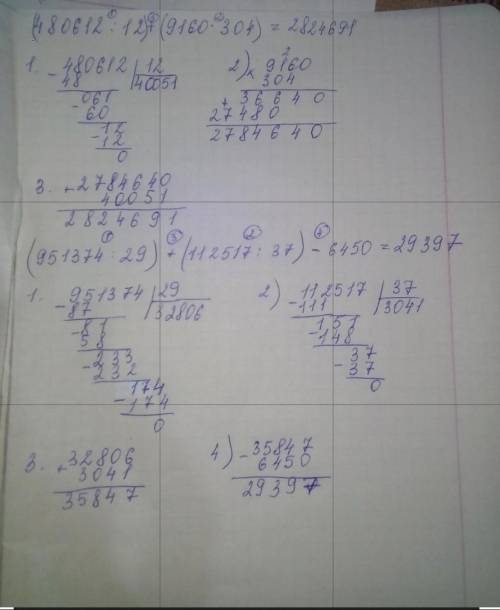 (480612 : 12) + (9160 · 304) = 2824691
1. - 480612 | 12
48 | 40051
- 061
60
- 12
12
0
2) × 9160
304
+ 36640
27480
2784640
3. + 2784640
40051
2824691
(951374 : 29) + (112517 : 37) - 6450 = 29397
1. - 951374 | 29
87 | 32806
- 81
58
- 233
232
- 174
174
0
2) - 112517 | 37
111 | 3041
- 151
148
- 37
37
0
3. + 32806
3041
35847
4) - 35847
6450
29397